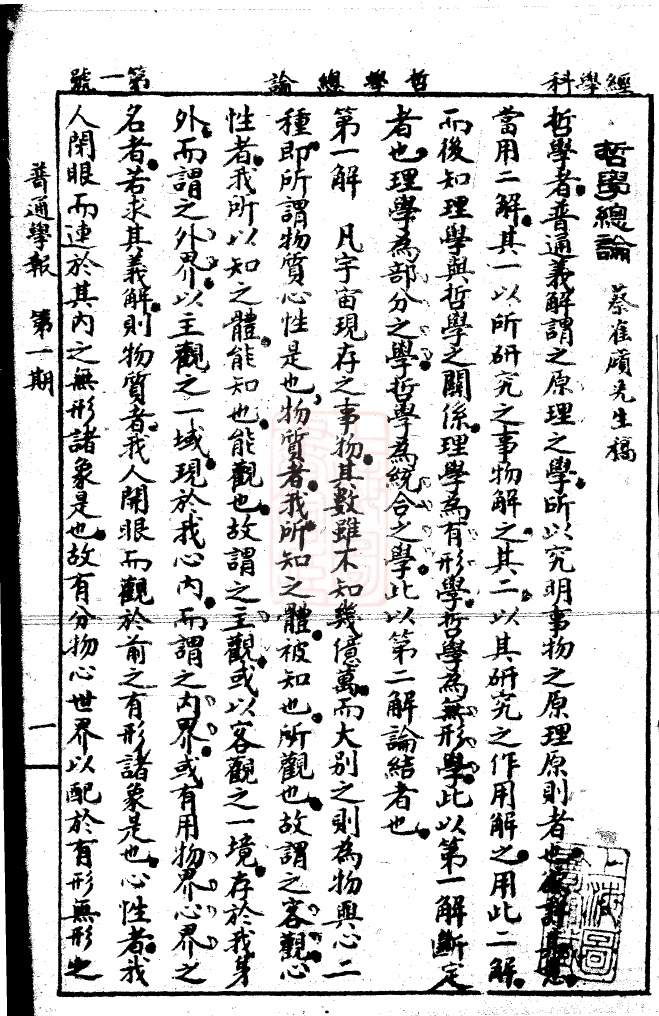 經學科
哲學總論
第一號
哲學總論 蔡隺廎先生稿
哲學者普通義解謂之原理之學所以究明事物之原理原則者也欲詳其意
當用二解其一以所研究之事物解之其二以其研究之作用解之用此二解
而後知理學與哲學之關係理學為有形學哲學為無形學此以第一解斷定
者也理學為部分之學哲學為統合之學此以第二解論結者也
第一解 凡宇宙現存之事物其數雖不知幾億萬而大別之則為物與心二
種即所謂物質心性是也物質者我所知之體被知也所觀也故謂之客觀心
性者我所以知之體能知也能觀也故謂之主觀或以客觀之一境存於我身
外而謂之外界以主觀之一域現於我心內而謂之內界或有用物界心界之
名者若求其義解則物質者我人開眼而觀於前之有形諸象是也心性者我
人閉眼而連於其內之無形諸象是也故有分物心世界以配於有形無形之
普通學報 第一期
一